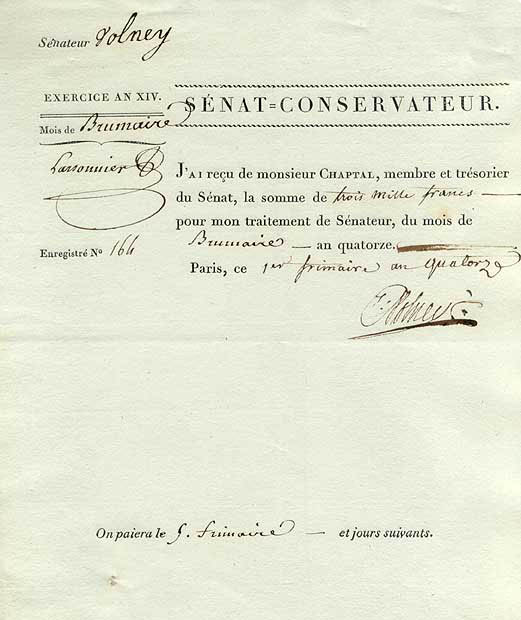 Sénateur Volney
EXERCICE AN XIV.
Mois de Brumaire
SÉNAT=CONSERVATEUR.
J'AI reçu de monsieur CHAPTAL, membre et trésorier
du Sénat, la somme de trois mille francs
pour mon traitement de Sénateur, du mois de
Brumaire — an quatorze.
Paris, ce 1er frimaire an quatorze
Enregistré Nº 164
Volney
On paiera le 5. frimaire — et jours suivants.